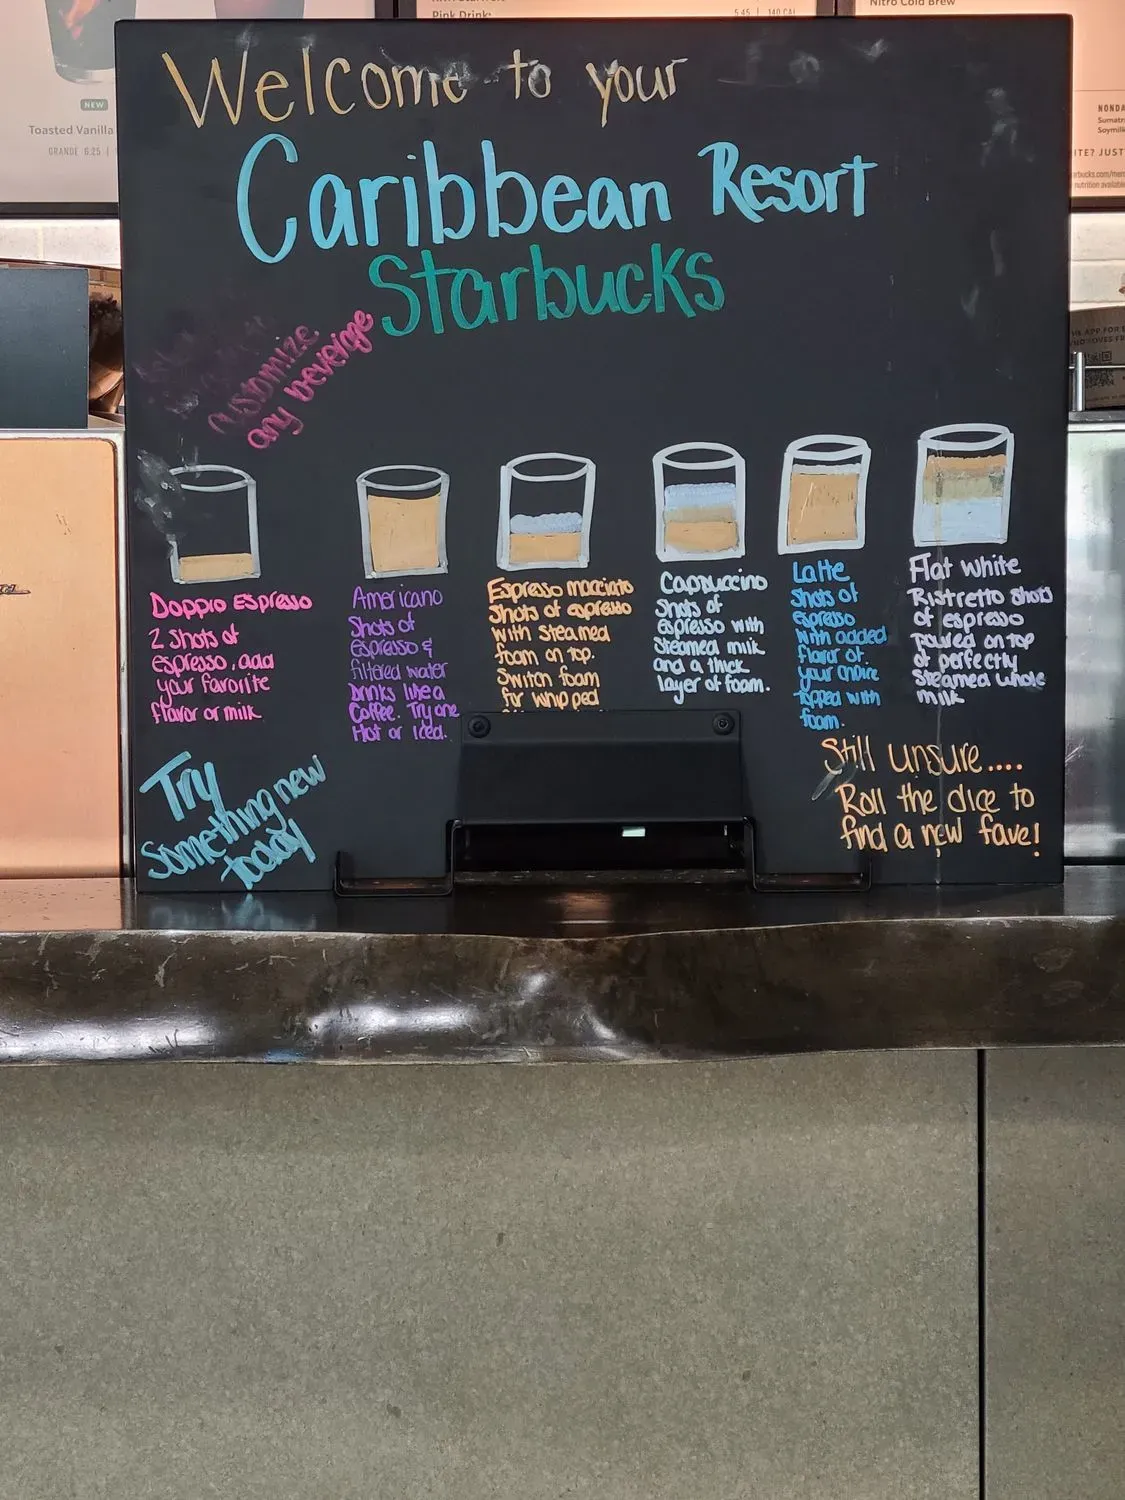 Pink Drink:
5.45 | 140 CAL
Nitro Cold Brew
NEW
Toasted Vanilla
GRANDE 6.25 |
Welcome to your
Caribbean Resort
Starbucks
customize
any beverage
Doppio Espresso
2 shots of
espresso, add
your favorite
flavor or milk
Americano
Shots of
Espresso &
filtered water
Drinks like a
Coffee. Try one
Hot or Iced.
Espresso macciato
Shots of espresso
with steamed
foam on top.
Switch foam
for whipped
Cappuccino
Shots of
espresso with
Steamed milk
and a thick
layer of foam.
Latte
Shots of
espresso
with added
flavor of
your choice
topped with
foam.
Flat white
Ristretto shots
of espresso
poured on top
of perfectly
steamed whole
milk
Try
Something new
today
Still unsure....
Roll the dice to
find a new fave!